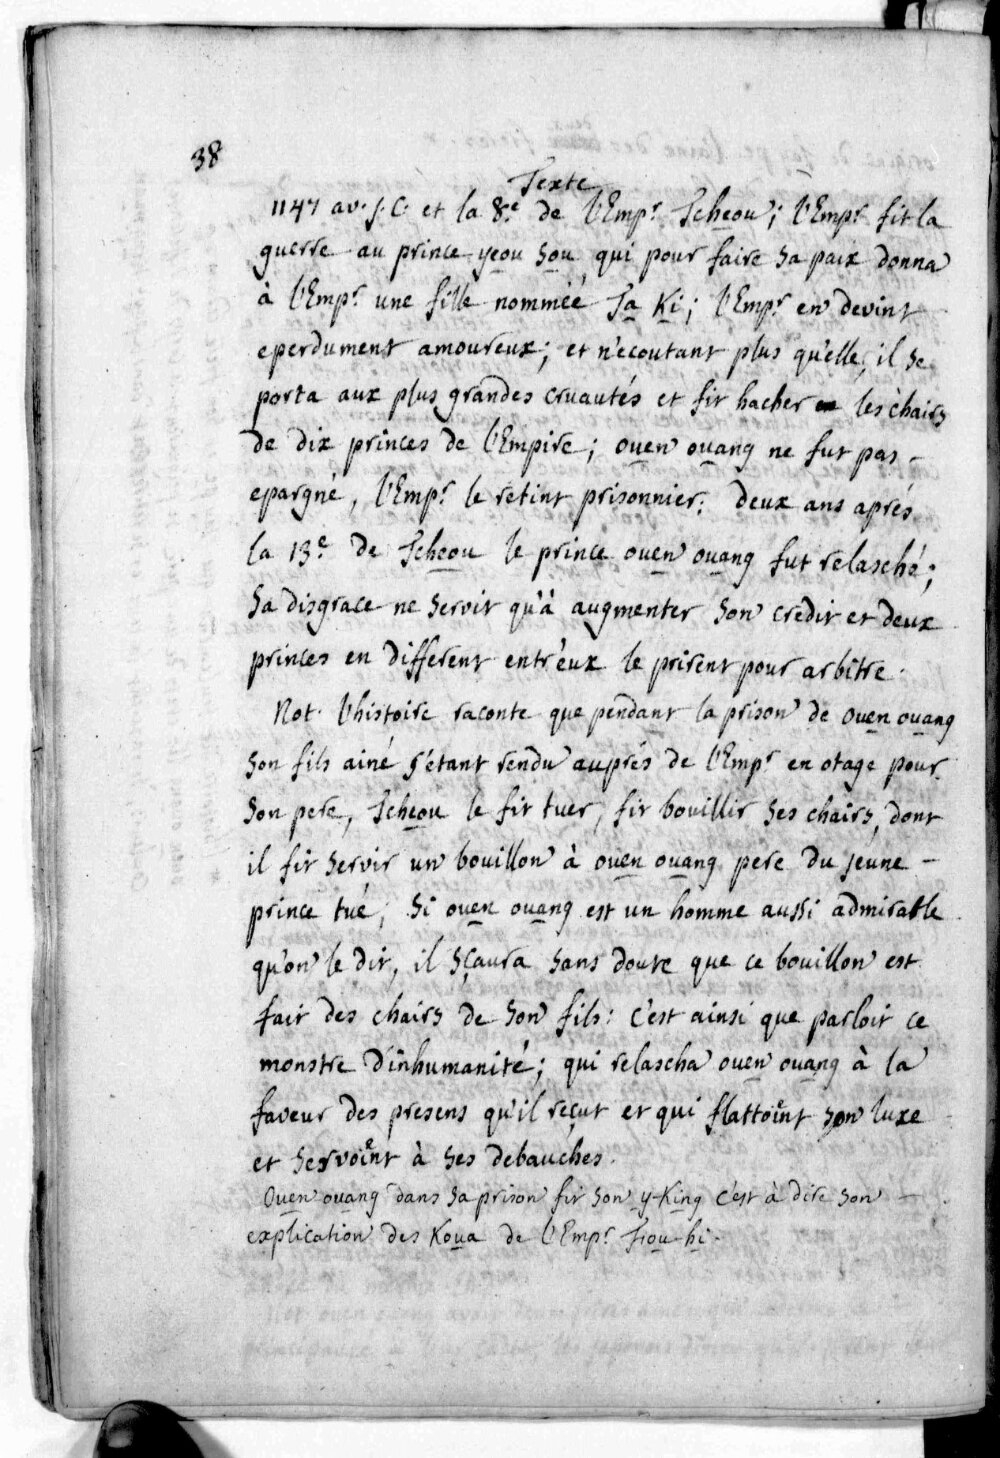 38
Texte
1147 av. J. C. et la 8.e de l'Emp.r Tcheou; l'Emp.r fit la
guerre au prince yeou sou qui pour faire sa paix donna
à l'Emp.r une fille nommèé Ta Ki; l'Emp.r en devint
eperdument amoureux; et n'ecoutant plus qu'elle, il se
porta aux plus grandes cruautés et fit hacher les chairs
de dix princes de l'Empire; ouen ouang ne fut pas
epargné, l'Emp.r le retint prisonnier. deux ans aprés
la 13.e de Tcheou le prince ouen ouang fut relasché;
sa disgrace ne servit qu'à augmenter son credit et deux
princes en different entr'eux le prirent pour arbitre.
Not. l'histoire raconte que pendant la prison de ouen ouang
son fils ainé s'étant rendu auprés de l'Emp.r en otage pour
son pere, Tcheou le fit tuer, fit bouillir ses chairs, dont
il fit servir un bouillon à ouen ouang pere du jeune
prince tué; si ouen ouang est un homme aussi admirable
qu'on le dit, il sçaura sans doute que ce bouillon est
fait des chairs de son fils: c'est ainsi que parloit ce
monstre d'inhumanité; qui relascha ouen ouang à la
faveur des presens qu'il reçut et qui flattoient son luxe
et servoient à ses debauches.
Ouen ouang dans sa prison fit son y-King c'est à dire son
explication des Koua de l'Emp.r Fou-hi.